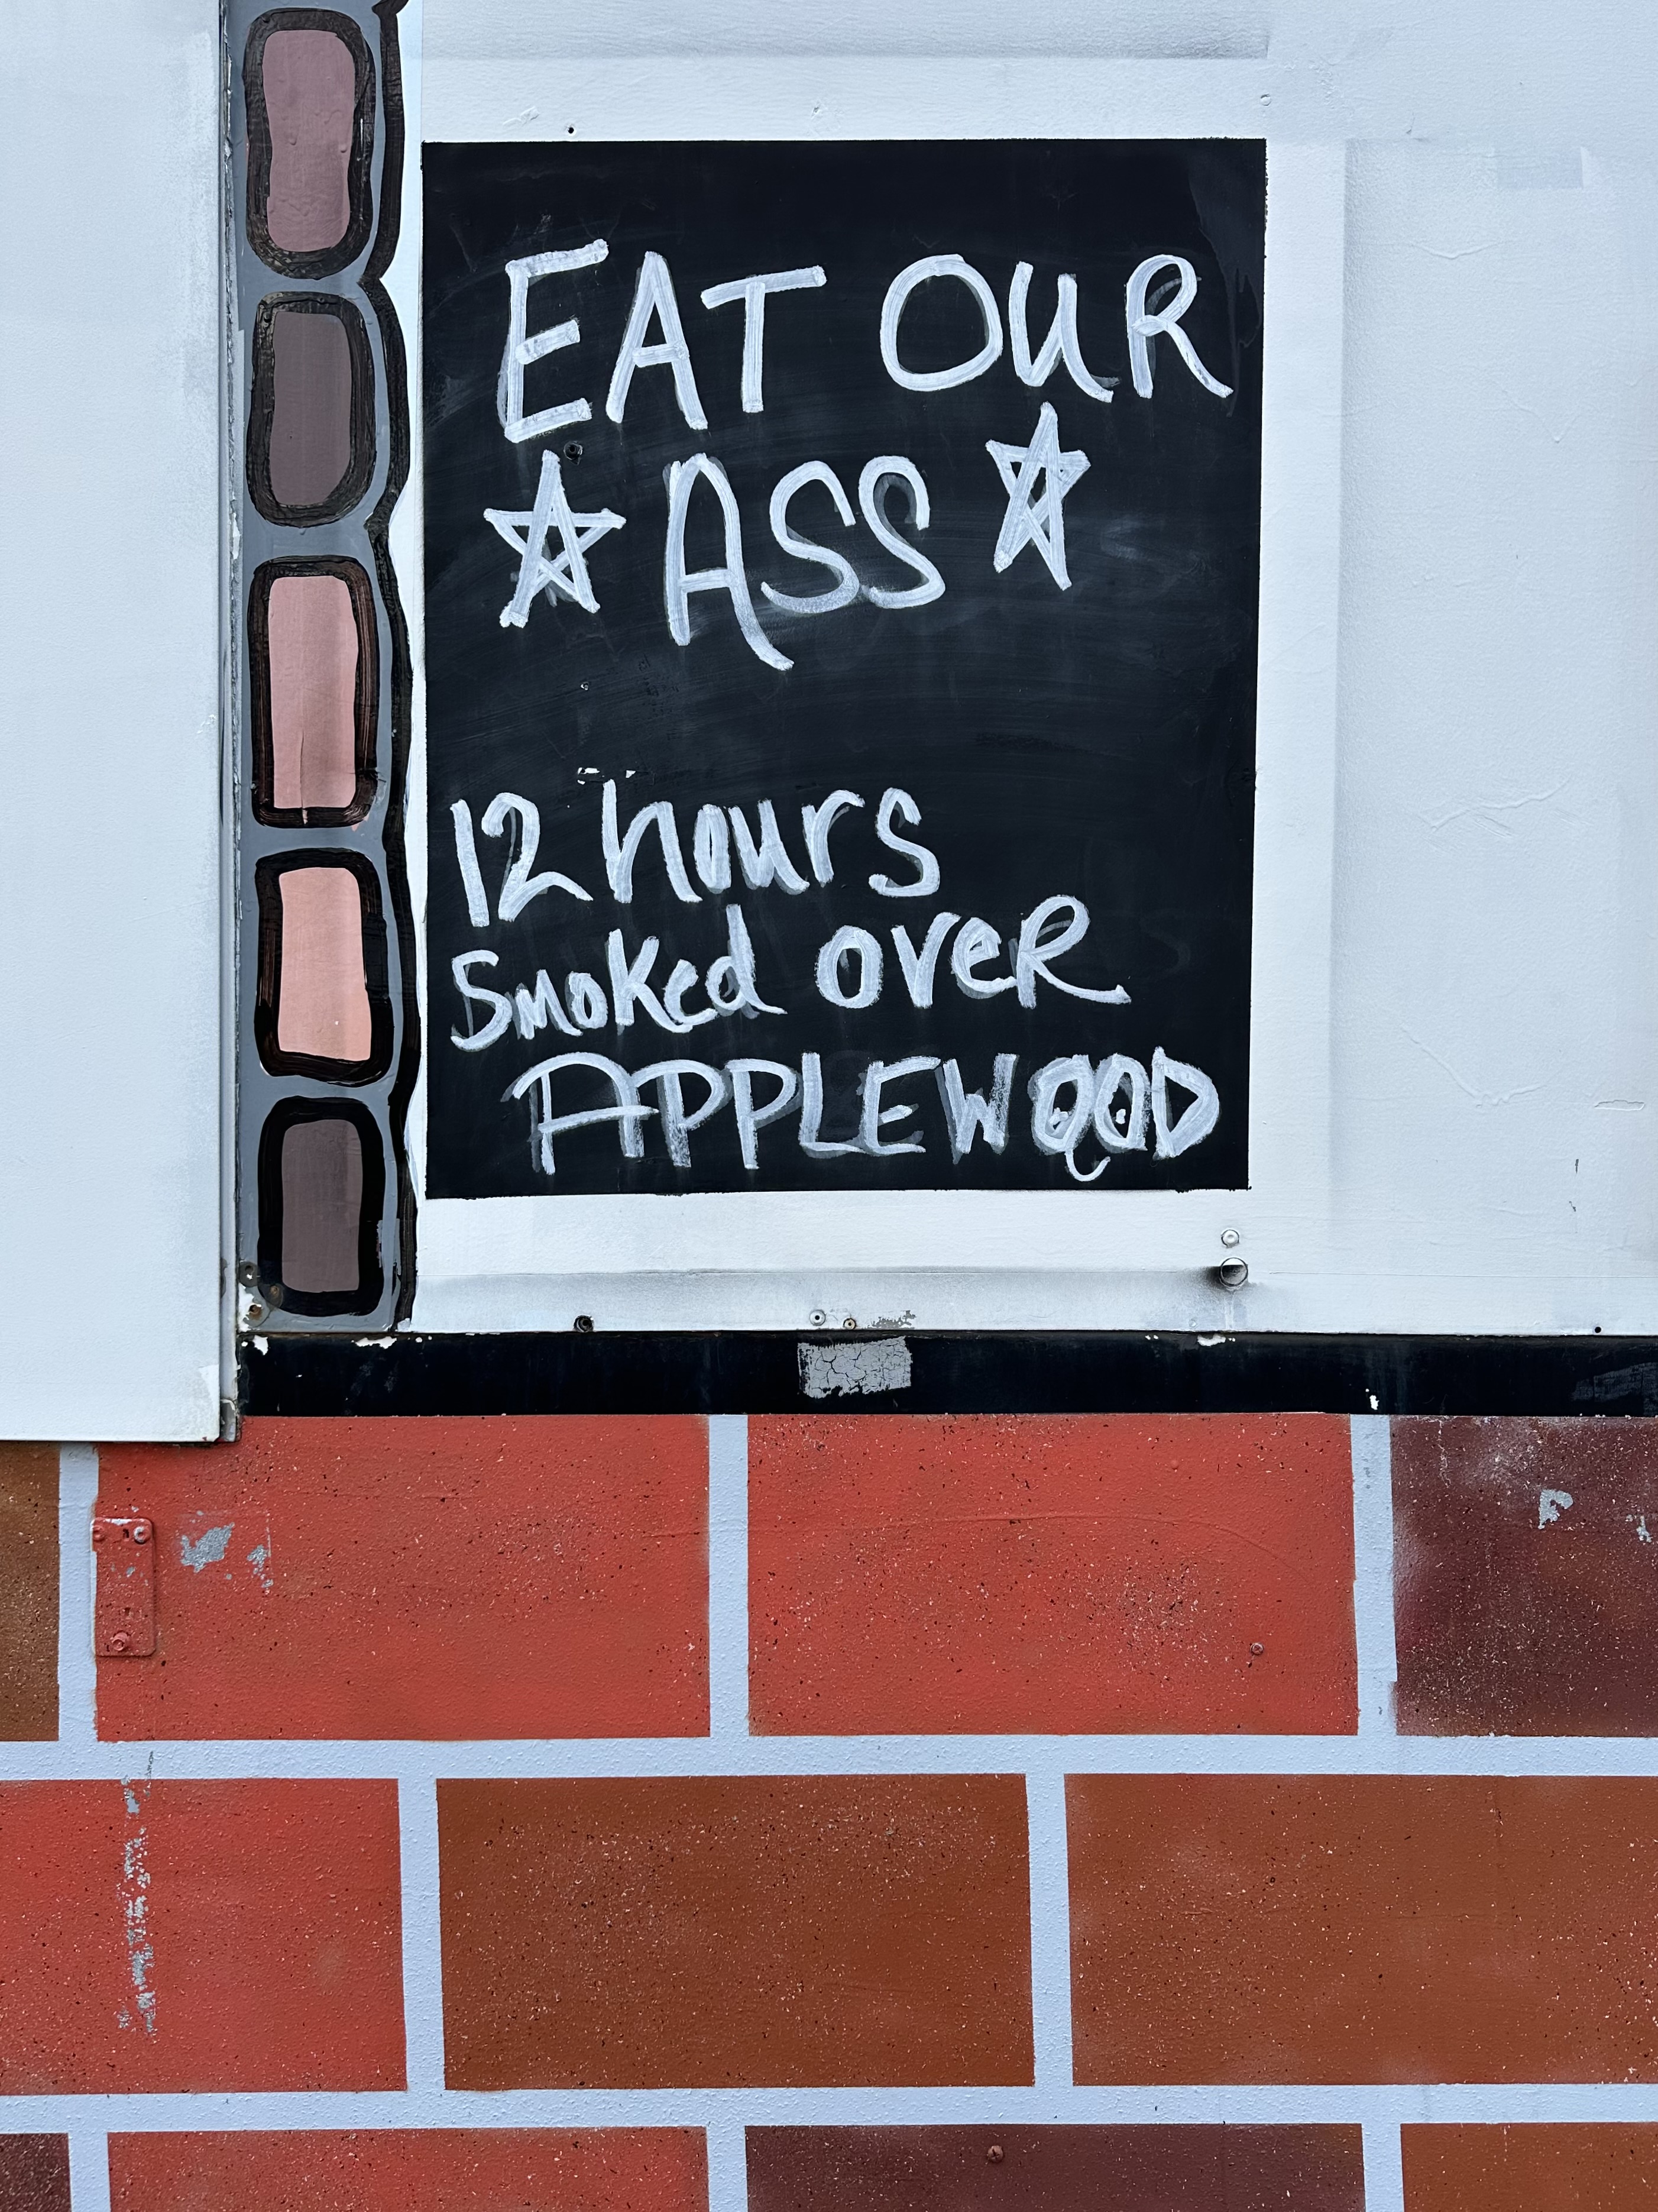 EAT OUR
☆ ASS ☆
12 hours
Smoked over
APPLEWOOD